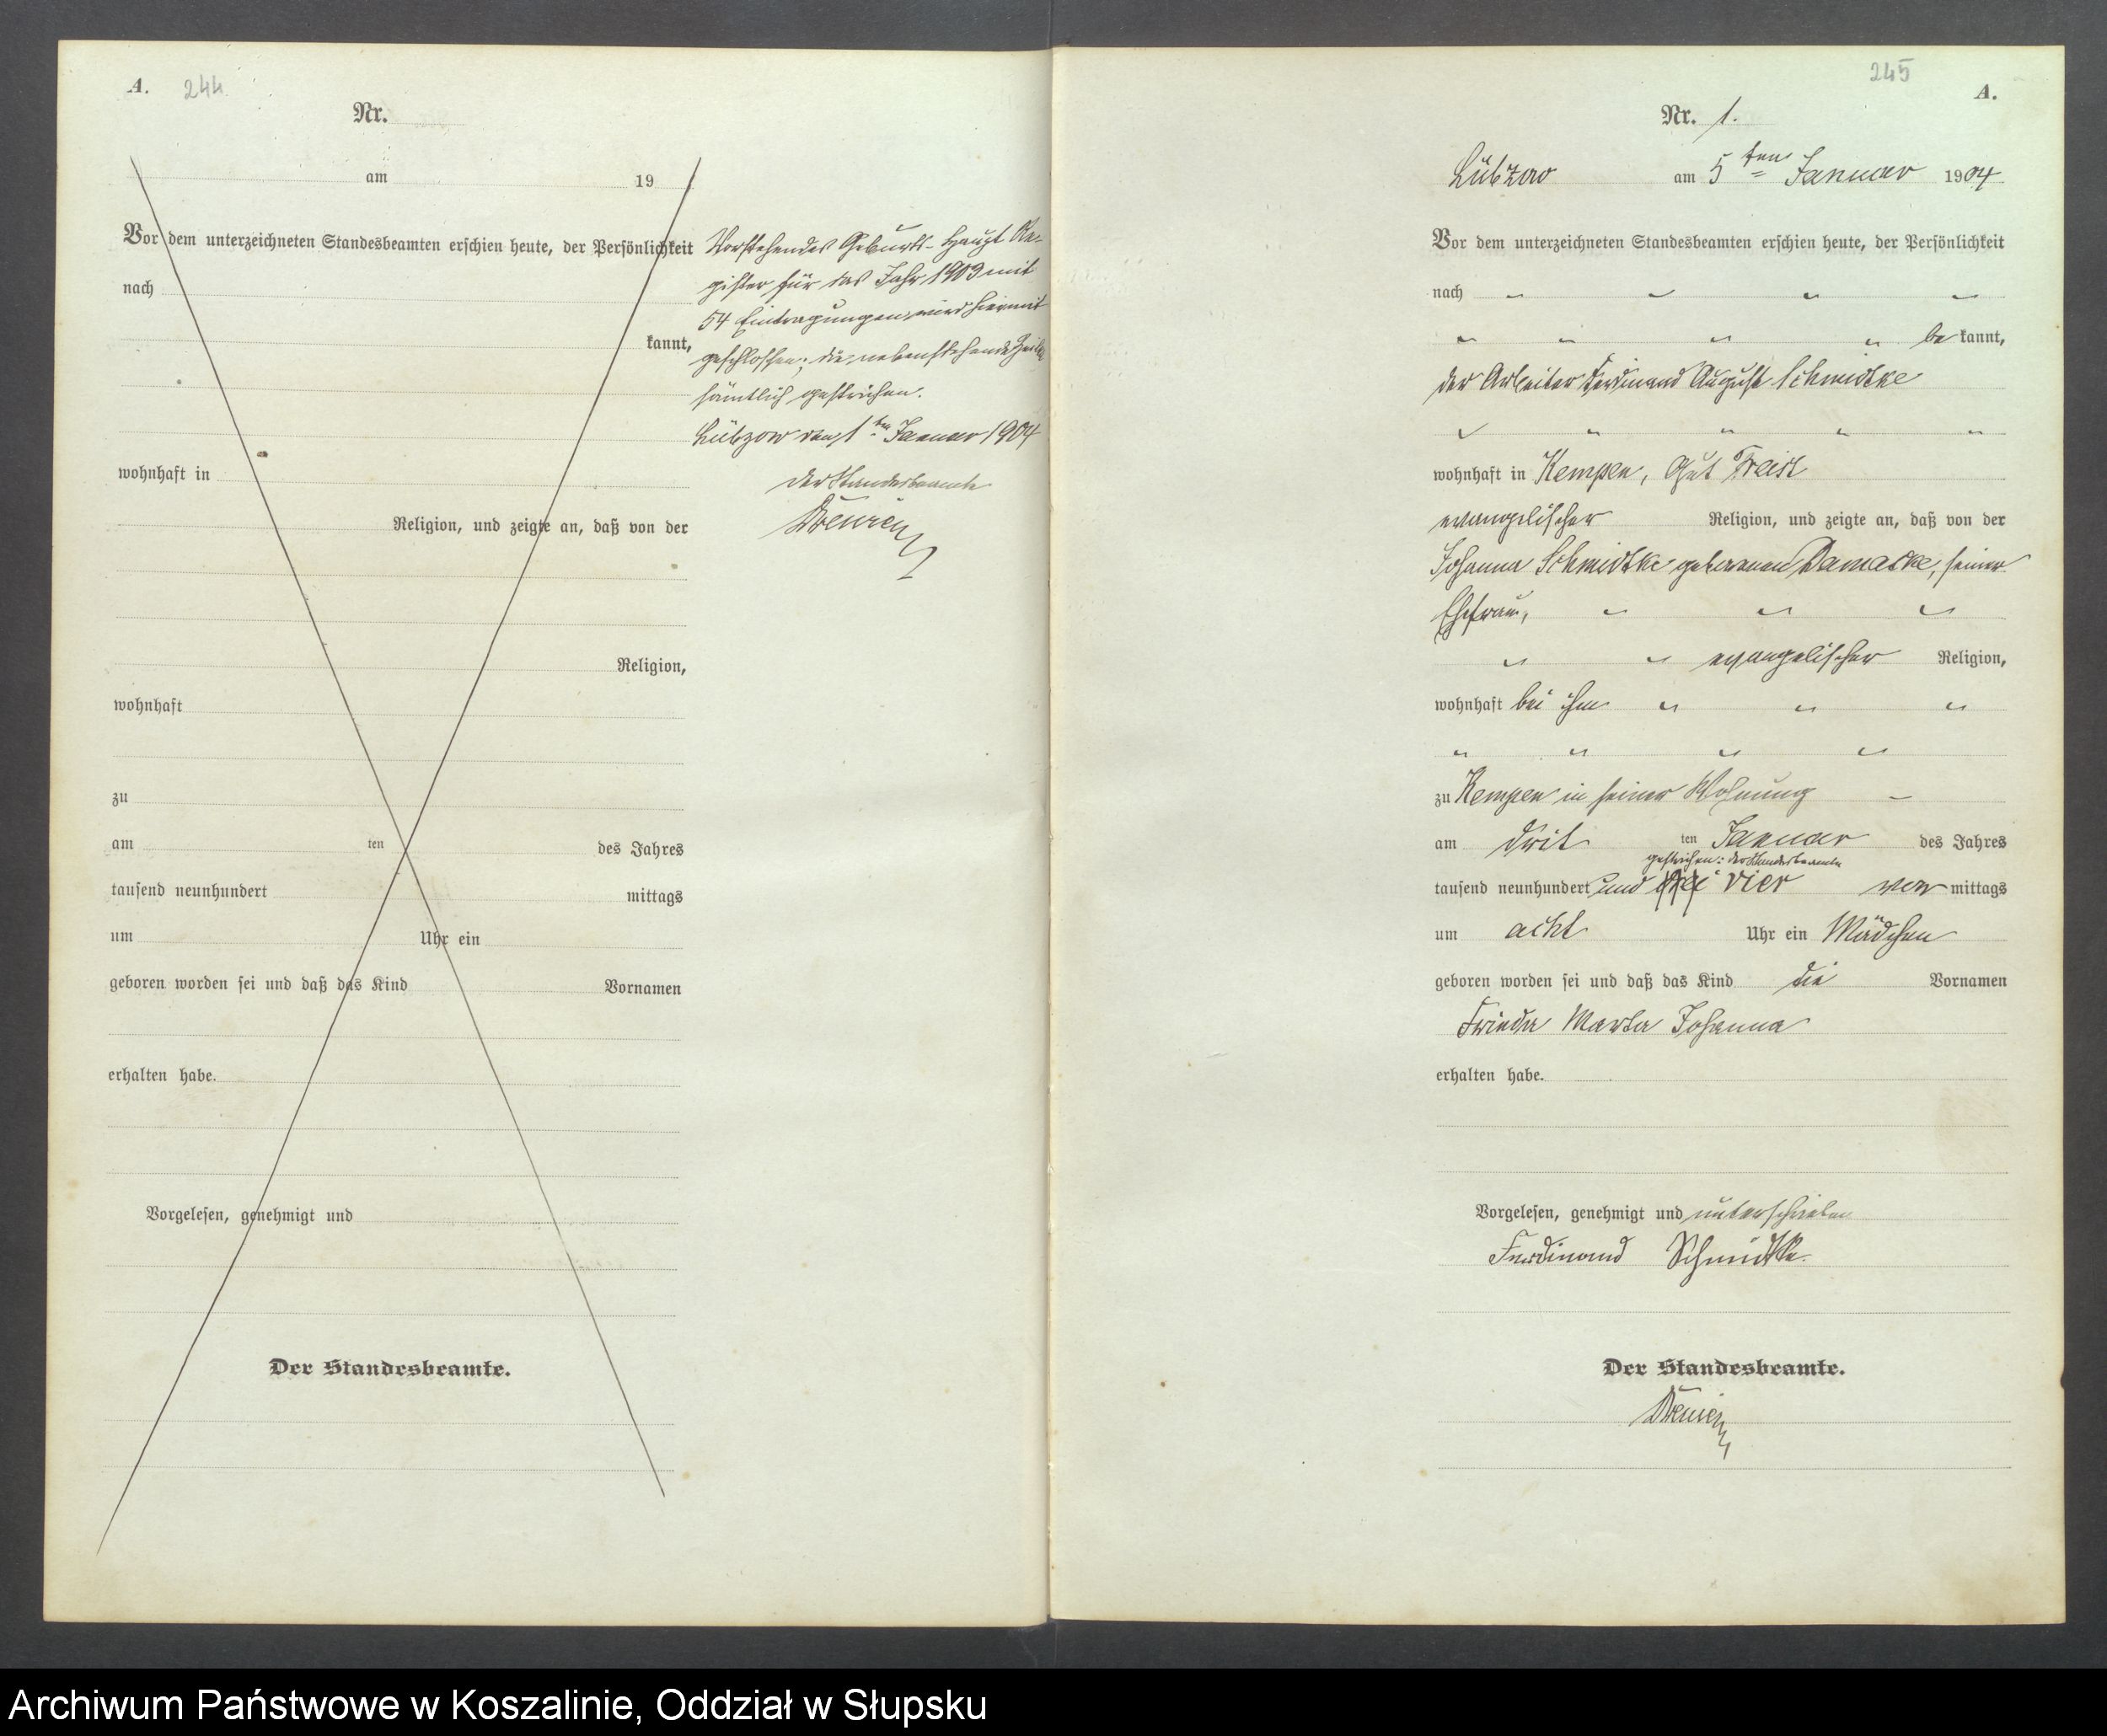 A. 244
Nr.
am 19
Vor dem unterzeichneten Standesbeamten erschien heute, der Persönlichkeit
nach
kannt,
wohnhaft in
Religion, und zeigte an, daß von der
Religion,
wohnhaft
zu
am ten des Jahres
tausend neunhundert mittags
um Uhr ein
geboren worden sei und daß das Kind Vornamen
erhalten habe.
Vorgelesen, genehmigt und
Der Standesbeamte.
Vorstehendes Geburts-Haupt Re-
gister für das Jahr 1903 mit
54 Eintragungen wird hiermit
geschlossen; die nebenstehende Zeilen
sämtlich gestrichen.
Lübzow den 1ten Januar 1904
Der Standesbeamte
245
A.
Nr. 1.
Lübzow am 5ten Januar 1904
Vor dem unterzeichneten Standesbeamten erschien heute, der Persönlichkeit
nach
be kannt,
der Arbeiter Ferdinand August Schmidtke
wohnhaft in Kempen, Gut Freist
evangelischer Religion, und zeigte an, daß von der
Johanna Schmidtke geborenen Damaske, seiner
Ehefrau,
evangelischer Religion,
wohnhaft bei ihm
zu Kempen in seiner Wohnung –
am drit ten Januar des Jahres
gestrichen: der Standesbeamte
tausend neunhundert und drei vier vor mittags
um acht Uhr ein Mädchen
geboren worden sei und daß das Kind die Vornamen
Frieda Marta Johanna
erhalten habe.
Vorgelesen, genehmigt und unterschrieben
Ferdinand Schmidtke.
Der Standesbeamte.
Archiwum Państwowe w Koszalinie, Oddział w Słupsku